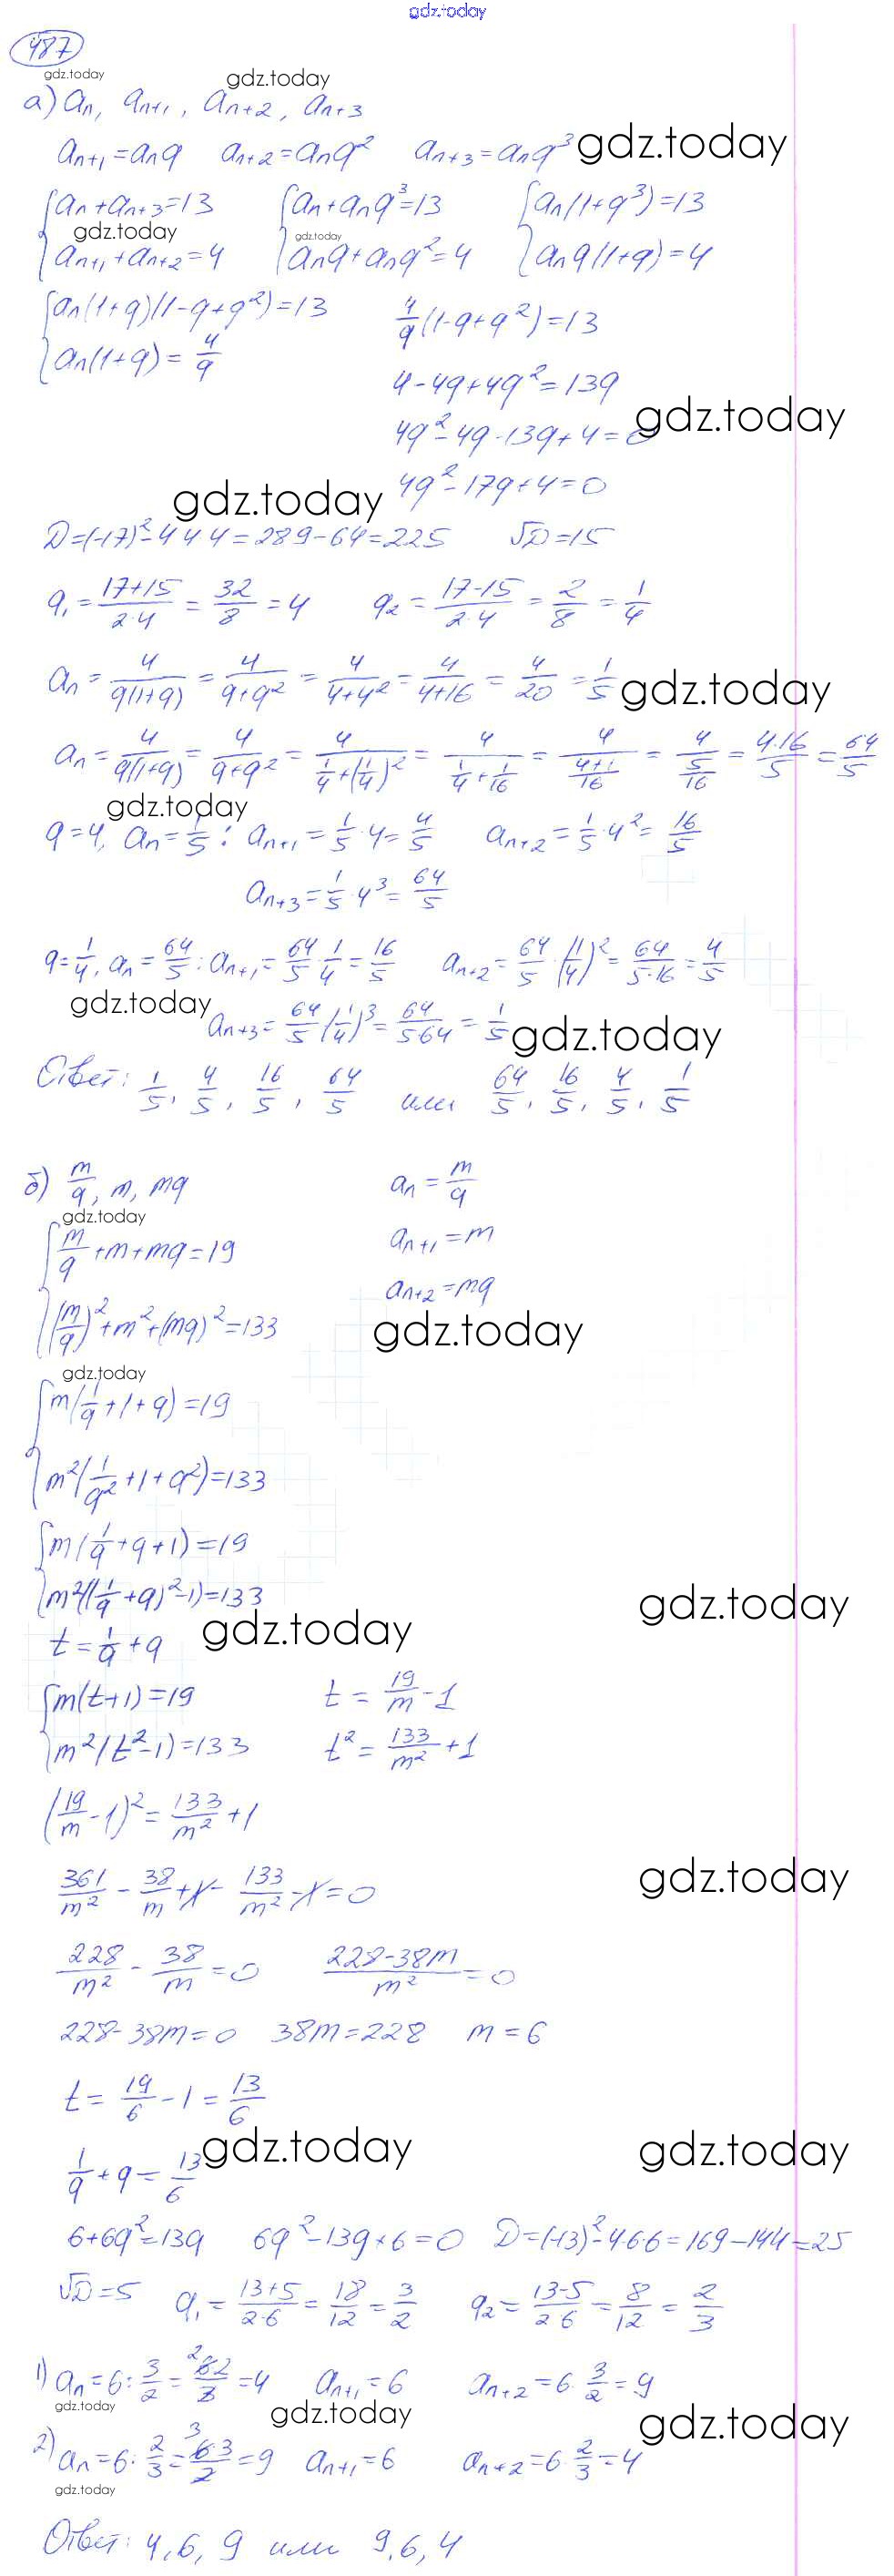 gdz.today
487
gdz.today
gdz.today
а) aₙ, aₙ₊₁, aₙ₊₂, aₙ₊₃
aₙ₊₁=aₙq aₙ₊₂=aₙq² aₙ₊₃=aₙq³ gdz.today
{aₙ+aₙ₊₃=13 {aₙ+aₙq³=13 {aₙ(1+q³)=13
gdz.today gdz.today
{aₙ₊₁+aₙ₊₂=4 {aₙq+aₙq²=4 {aₙq(1+q)=4
{aₙ(1+q)(1-q+q²)=13 4/q(1-q+q²)=13
{aₙ(1+q)=4/q
4-4q+4q²=13q
gdz.today
4q²-4q-13q+4=0
4q²-17q+4=0
gdz.today
D=(-17)²-4·4·4=289-64=225 √D=15
q₁=(17+15)/(2·4)=32/8=4 q₂=(17-15)/(2·4)=2/8=1/4
aₙ=4/(q(1+q))=4/(q+q²)=4/(4+4²)=4/(4+16)=4/20=1/5 gdz.today
aₙ=4/(q(1+q))=4/(q+q²)=4/(1/4+(1/4)²)=4/(1/4+1/16)=4/((4+1)/16)=4/(5/16)=(4·16)/5=64/5
gdz.today
q=4, aₙ=1/5: aₙ₊₁=1/5·4=4/5 aₙ₊₂=1/5·4²=16/5
aₙ₊₃=1/5·4³=64/5
q=1/4, aₙ=64/5: aₙ₊₁=64/5·1/4=16/5 aₙ₊₂=64/5·(1/4)²=64/(5·16)=4/5
gdz.today
aₙ₊₃=64/5(1/4)³=64/(5·64)=1/5 gdz.today
Ответ: 1/5, 4/5, 16/5, 64/5 или 64/5, 16/5, 4/5, 1/5
б) m/q, m, mq aₙ=m/q
gdz.today
{m/q+m+mq=19 aₙ₊₁=m
aₙ₊₂=mq
{(m/q)²+m²+(mq)²=133 gdz.today
gdz.today
{m(1/q+1+q)=19
{m²(1/q²+1+q²)=133
{m(1/q+q+1)=19
{m²((1/q+q)²-1)=133 gdz.today
t=1/q+q gdz.today
{m(t+1)=19 t=19/m-1
{m²(t²-1)=133 t²=133/m²+1
(19/m-1)²=133/m²+1
361/m²-38/m+1-133/m²-1=0 gdz.today
228/m²-38/m=0 (228-38m)/m²=0
228-38m=0 38m=228 m=6
t=19/6-1=13/6
1/q+q=13/6 gdz.today gdz.today
6+6q²=13q 6q²-13q+6=0 D=(-13)²-4·6·6=169-144=25
√D=5 q₁=(13+5)/(2·6)=18/12=3/2 q₂=(13-5)/(2·6)=8/12=2/3
1) aₙ=6:3/2=6·2/3=4 aₙ₊₁=6 aₙ₊₂=6·3/2=9
gdz.today gdz.today gdz.today
2) aₙ=6:2/3=6·3/2=9 aₙ₊₁=6 aₙ₊₂=6·2/3=4
gdz.today
Ответ: 4, 6, 9 или 9, 6, 4